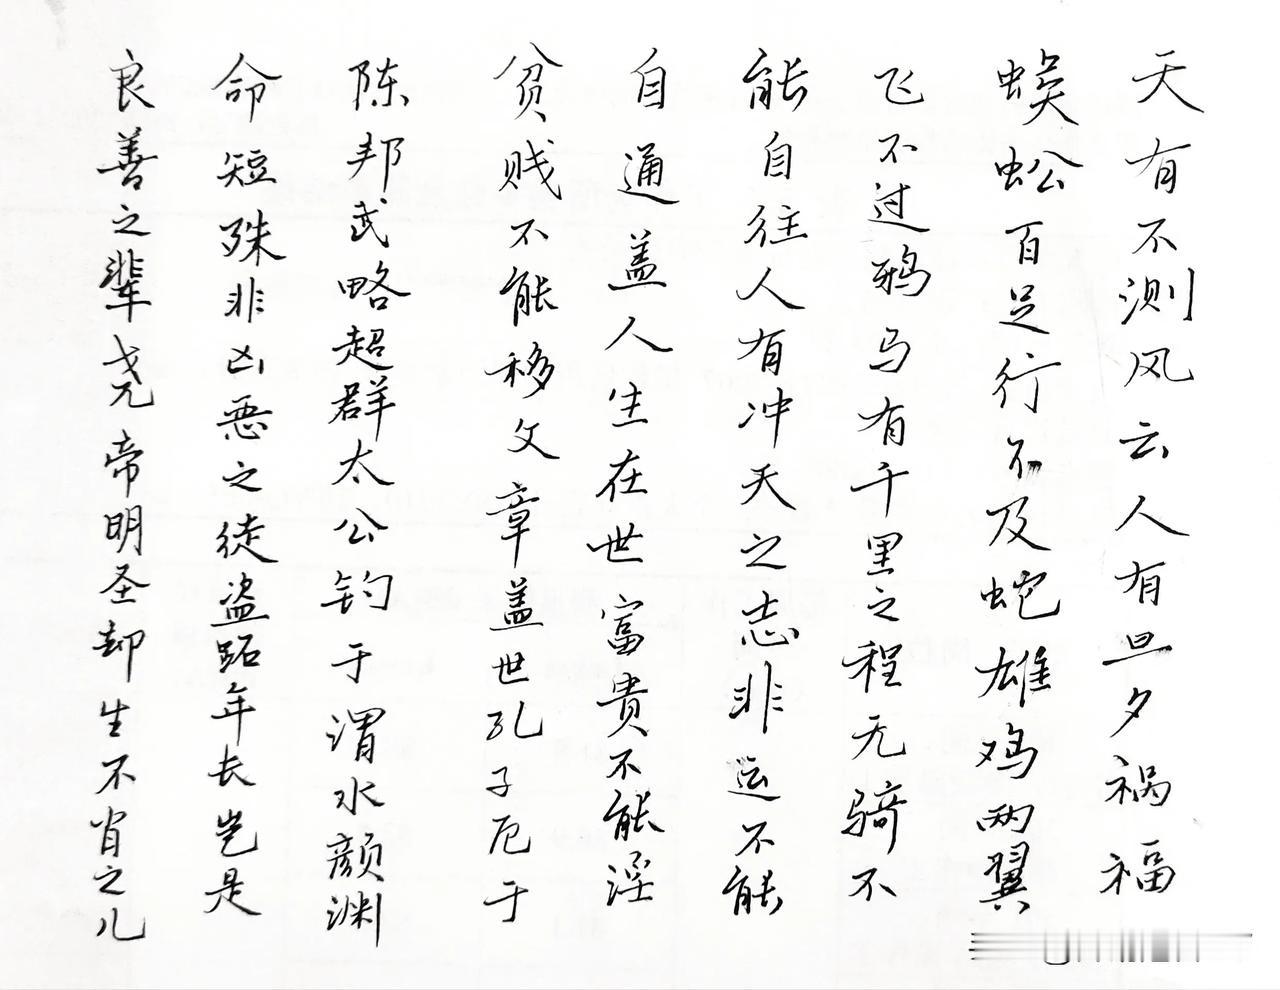 天有不测风云人有旦夕祸福
蜈蚣百足行不及蛇雄鸡两翼
飞不过鸦马有千里之程无骑不
能自往人有冲天之志非运不能
自通盖人生在世富贵不能淫
贫贱不能移文章盖世孔子厄于
陈邦武略超群太公钓于渭水颜渊
命短殊非凶恶之徒盗跖年长岂是
良善之辈尧帝明圣却生不肖之儿